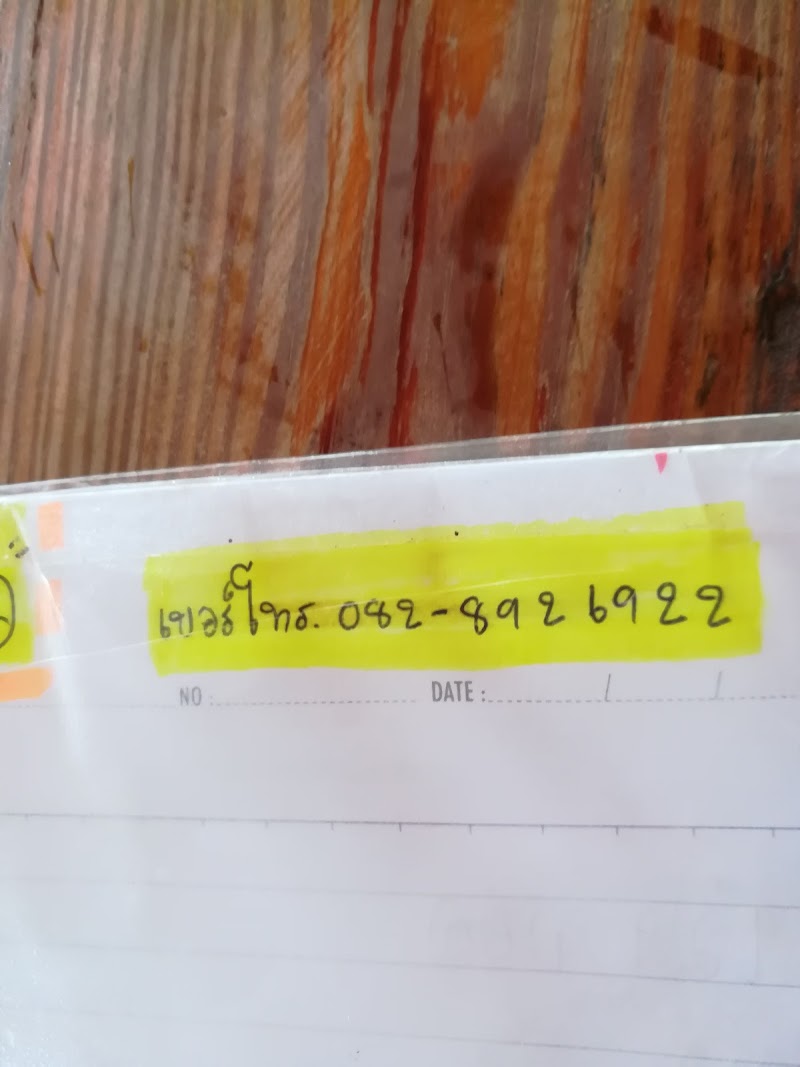 เบอร์โทร. 082-892 6922
NO : DATE : / /